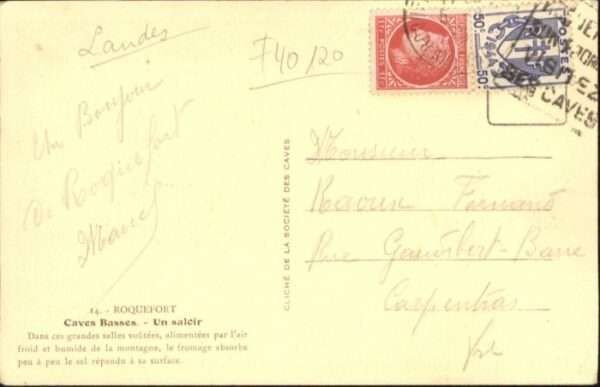 Landes
F40/20
Un Bonjour
de Roquefort
Monsieur
Raoux Fernand
Rue
Carpentras
CLICHÉ DE LA SOCIÉTÉ DES CAVES
50c
50c
POSTES
CAVES
14. - ROQUEFORT
Caves Basses. - Un saloir
Dans ces grandes salles voûtées, alimentées par l'air
froid et humide de la montagne, le fromage absorbe
peu à peu le sel répandu à sa surface.